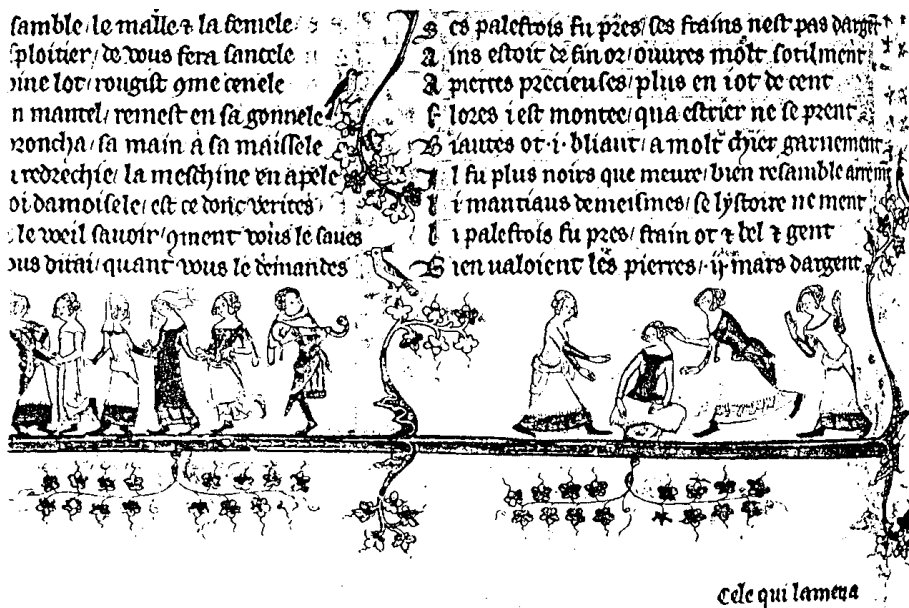 samble / le malle ⁊ la femele
sploitier / de vous fera lancele
lot / rougist ꝯme cenele
n mantel / remest en sa gonnele
broncha / sa main a sa maissele
redrechie / la meschine en apele
oi damoisele / est ce donc verites
le weil savoir / ꝯment vous le saves
ous dirai / quant vous le demandes
Ses palefrois fu pres / ses frains nest pas dargent
Ains estoit de fin or / ouvres molt sotilment
A pierres precieuses / plus en i ot de cent
Flores i est montee / qua estrier ne se prent
Biautes ot .i. bliaut / a molt chier garnement
Il fu plus noirs que meure / bien resamble arrement
Li mantiaus de meismes / se lystoire ne ment
Li palefrois fu pres / frain ot ⁊ bel ⁊ gent
Bien valoient les pierres / .ij. mars dargent
Cele qui lamena